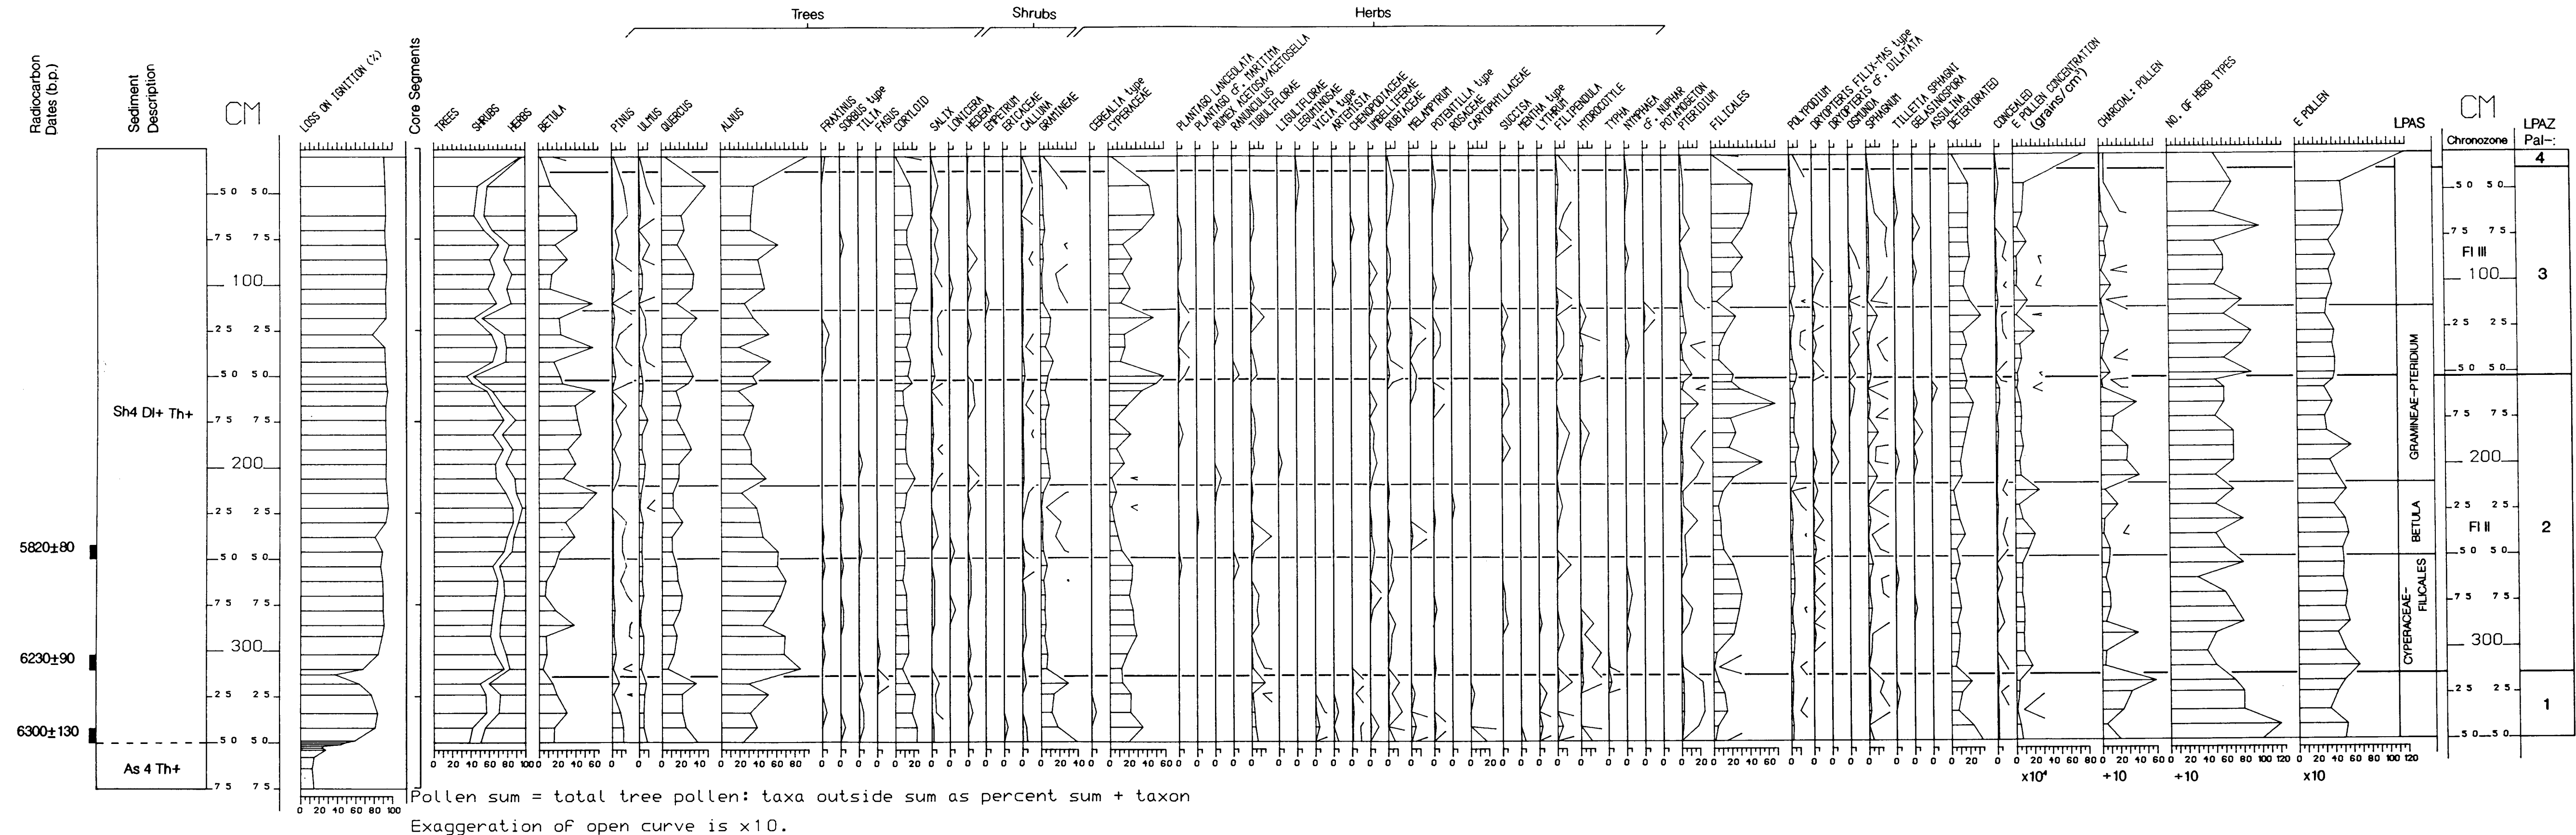 Trees
Shrubs
Herbs
Radiocarbon Dates (b.p.)
Sediment Description
CM
LOSS ON IGNITION (%)
Core Segments
TREES
SHRUBS
HERBS
BETULA
PINUS
ULMUS
QUERCUS
ALNUS
FRAXINUS
SORBUS type
TILIA
FAGUS
CORYLOID
SALIX
LONICERA
HEDERA
EMPETRUM
ERICACEAE
CALLUNA
GRAMINEAE
CEREALIA type
CYPERACEAE
PLANTAGO LANCEOLATA
PLANTAGO cf. MARITIMA
RUMEX ACETOSA/ACETOSELLA
RANUNCULUS
TUBULIFLORAE
LIGULIFLORAE
LEGUMINOSAE
VICIA type
ARTEMISIA
CHENOPODIACEAE
UMBELLIFERAE
RUBIACEAE
MELAMPYRUM
POTENTILLA type
ROSACEAE
CARYOPHYLLACEAE
SUCCISA
MENTHA type
LYTHRUM
FILIPENDULA
HYDROCOTYLE
TYPHA
NYMPHAEA
cf. NUPHAR
POTAMOGETON
PTERIDIUM
FILICALES
POLYPODIUM
DRYOPTERIS FILIX-MAS type
DRYOPTERIS cf. DILATATA
OSMUNDA
SPHAGNUM
TILLETIA SPHAGNI
GELASINOSPORA
ASSULINA
DETERIORATED
CONCEALED
E POLLEN CONCENTRATION (grains/cm³)
CHARCOAL: POLLEN
NO. OF HERB TYPES
E POLLEN
LPAS
CM
Chronozone
LPAZ
Pal-:
4
50 50
75 75
100
25 25
50 50
75 75
200
25 25
50 50
75 75
300
25 25
50 50
75 75
5820±80
6230±90
6300±130
Sh4 Dl+ Th+
As 4 Th+
GRAMINEAE-PTERIDIUM
BETULA
CYPERACEAE-FILICALES
50 50
75 75
Fl III
100
3
25 25
50 50
75 75
200
25 25
Fl II
2
50 50
75 75
300
25 25
1
50 50
0 20 40 60 80 100
x10⁴
+10
+10
x10
Pollen sum = total tree pollen: taxa outside sum as percent sum + taxon
Exaggeration of open curve is x10.